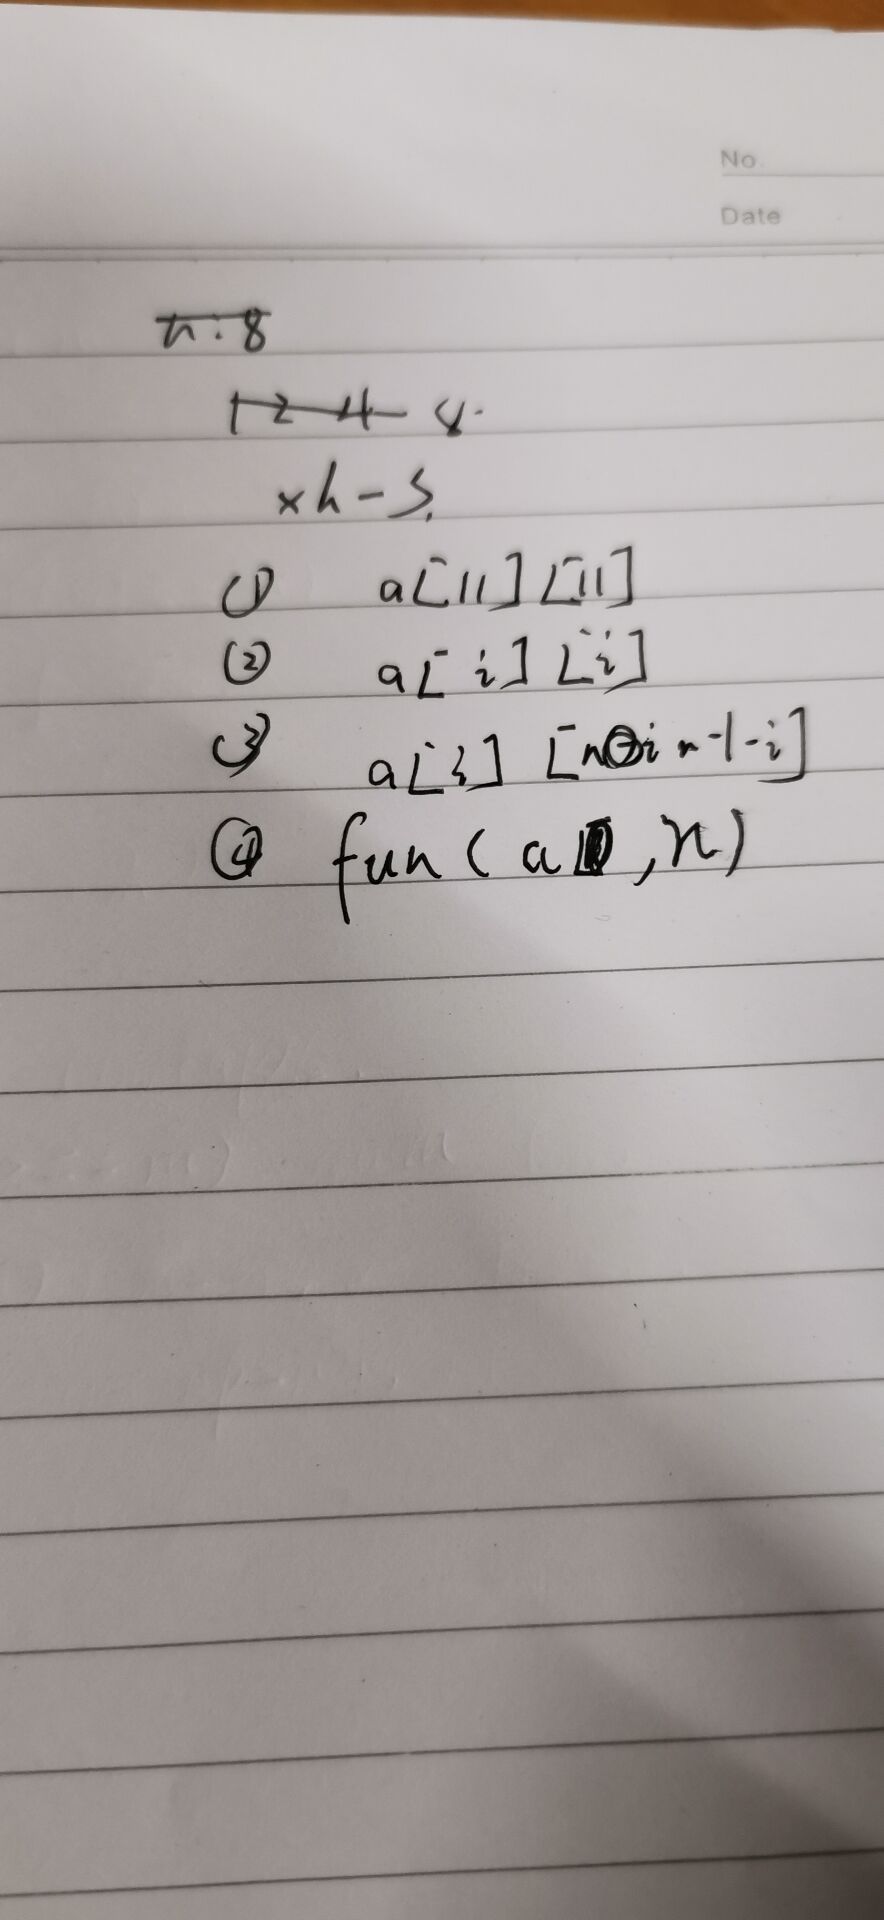 No.
Date
n:8
1 2 4 8.
xh-3.
① a[11][11]
② a[i][i]
③ a[i][n-1-i]
④ fun(a,n)